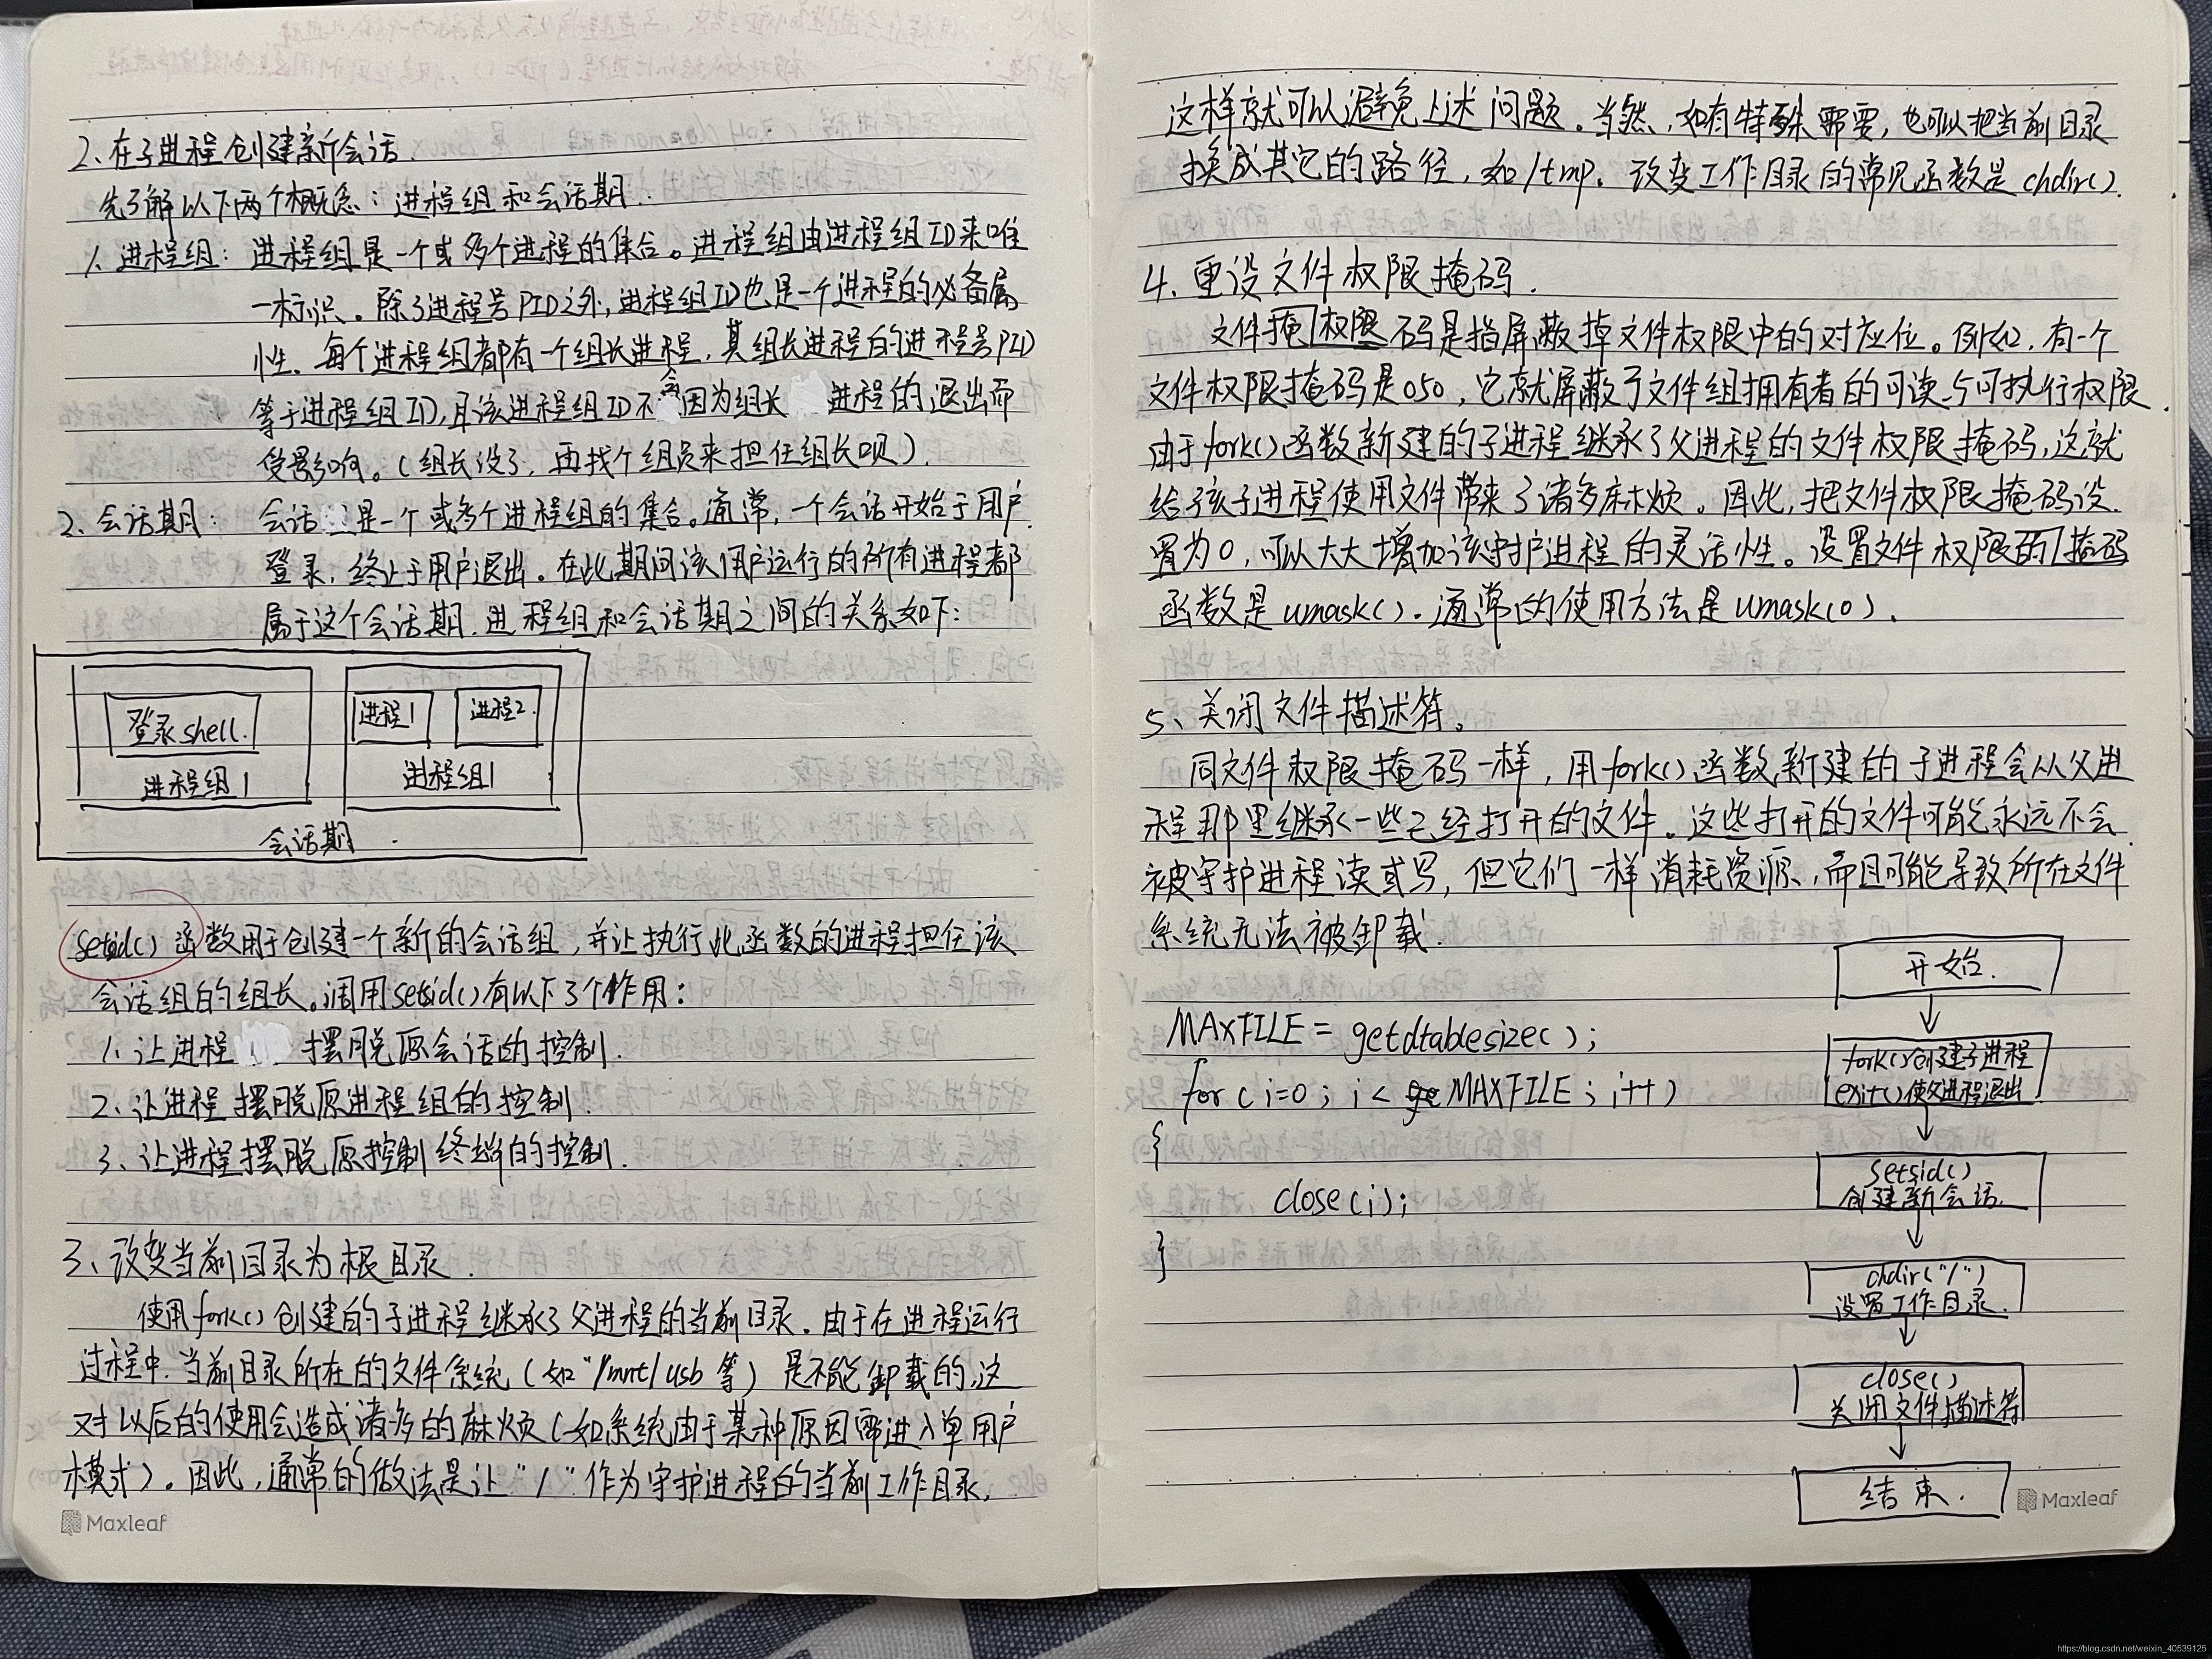 2、在子进程创建新会话.
先了解以下两个概念：进程组和会话期.
1、进程组：进程组是一个或多个进程的集合。进程组由进程组ID来唯
一标识。除了进程号PID之外,进程组ID也是一个进程的必备属
性。每个进程组都有一个组长进程,其组长进程的进程号PID
等于进程组ID,且该进程组ID不会因为组长进程的退出而
受影响。(组长没了,再找个组员来担任组长呗).
2、会话期：会话是一个或多个进程组的集合。通常,一个会话开始于用户
登录,终止于用户退出。在此期间该用户运行的所有进程都
属于这个会话期.进程组和会话期之间的关系如下:
登录shell.
进程1
进程2.
进程组1
进程组1
会话期
setsid()函数用于创建一个新的会话组,并让执行此函数的进程担任该
会话组的组长。调用setsid()有以下3个作用:
1、让进程摆脱原会话的控制.
2、让进程摆脱原进程组的控制.
3、让进程摆脱原控制终端的控制.
3、改变当前目录为根目录.
使用fork()创建的子进程继承了父进程的当前目录.由于在进程运行
过程中.当前目录所在的文件系统(如"/mnt/usb等)是不能卸载的,这
对以后的使用会造成诸多的麻烦(如系统由于某种原因需进入单用户
模式)。因此,通常的做法是让"/"作为守护进程的当前工作目录,
这样就可以避免上述问题。当然,如有特殊需要,也可以把当前目录
换成其它的路径,如/tmp。改变工作目录的常见函数是chdir().
4、重设文件权限掩码.
文件掩权限码是指屏蔽掉文件权限中的对应位。例如,有一个
文件权限掩码是050,它就屏蔽了文件组拥有者的可读与可执行权限.
由于fork()函数新建的子进程继承了父进程的文件权限掩码,这就
给孩子进程使用文件带来了诸多麻烦。因此,把文件权限掩码设
置为0,可以大大增加该守护进程的灵活性。设置文件权限的掩码
函数是umask().通常的使用方法是umask(0).
5、关闭文件描述符。
同文件权限掩码一样,用fork()函数新建的子进程会从父进
程那里继承一些已经打开的文件。这些打开的文件可能永远不会
被守护进程读或写,但它们一样消耗资源,而且可能导致所在文件
系统无法被卸载.
MAXFILE = getdtablesize();
for(i=0; i< MAXFILE; i++)
{
close(i);
}
开始.
fork()创建子进程
exit()使父进程退出
setsid()
创建新会话.
chdir("/")
设置工作目录.
close()
关闭文件描述符
结束.
Maxleaf
Maxleaf
https://blog.csdn.net/weixin_40539125